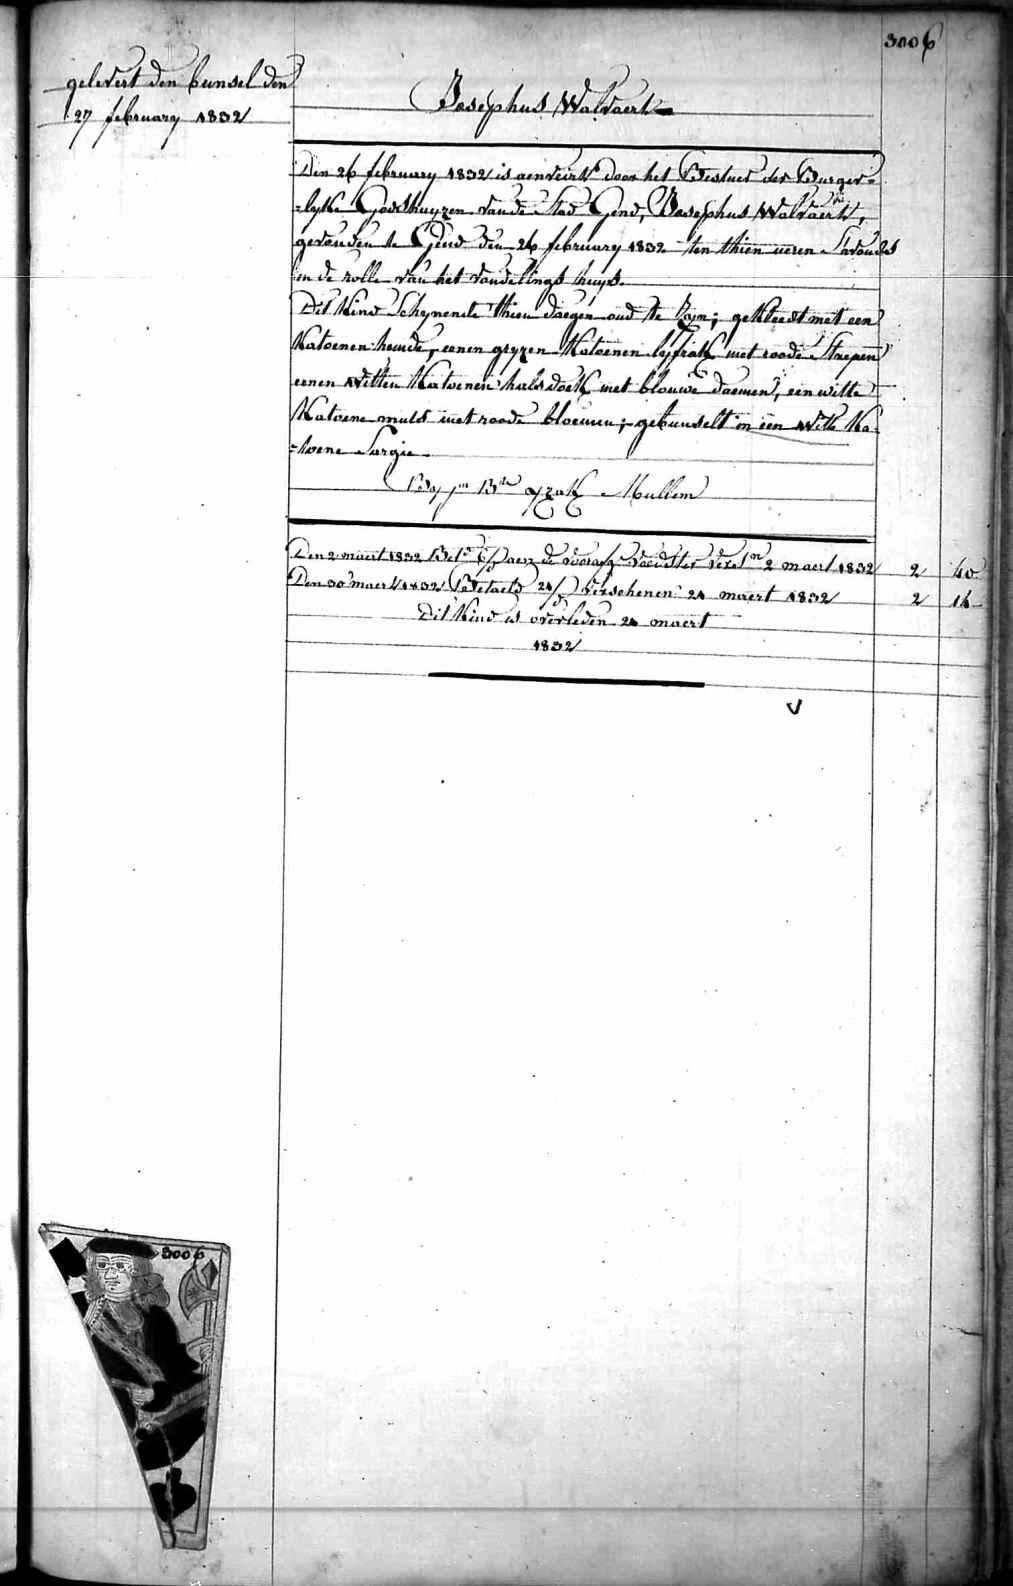 3006
gelevert den bunsel den
27 february 1832
Josephus Walvaert
Den 26 february 1832 is aenveirt door het Bestuer der Burger=
=lyke Godshuyzen van de Stad Gend, Josephus Walvaert,
gevonden te Gend den 26 february 1832 ten thien ueren Savonds
in de rolle van het vondelings huys.
Dit Kind Schynende thien daegen oud te Zyn; gekleedt met een
Katoenen hemde, eenen gryzen Katoenen lyfrak met roode Straepen
eenen witten Katoenen halsdoek met blouwe daemen, een witte
Katoene muts met roode bloemen; gebunselt in een witte Ka=
=toene Sargie.
Mullem
Den 2 maert 1832 de voedster 2 maert 1832 2 40
Den 30 maert 1832 Betaeld verschenen 21 maert 1832 2 14
Dit Kind is overleden 21 maert
1832
3006